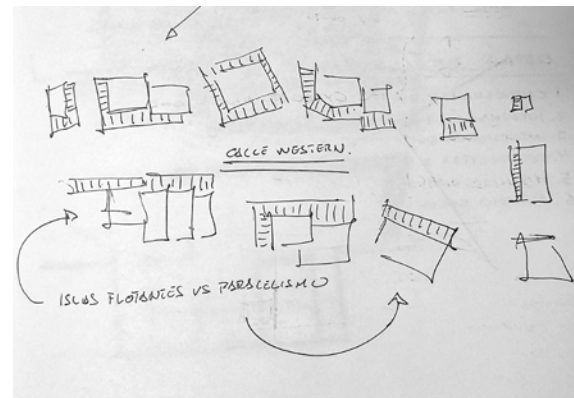 CALLE WESTERN.
ISLAS FLOTANTES VS PARALELISMO